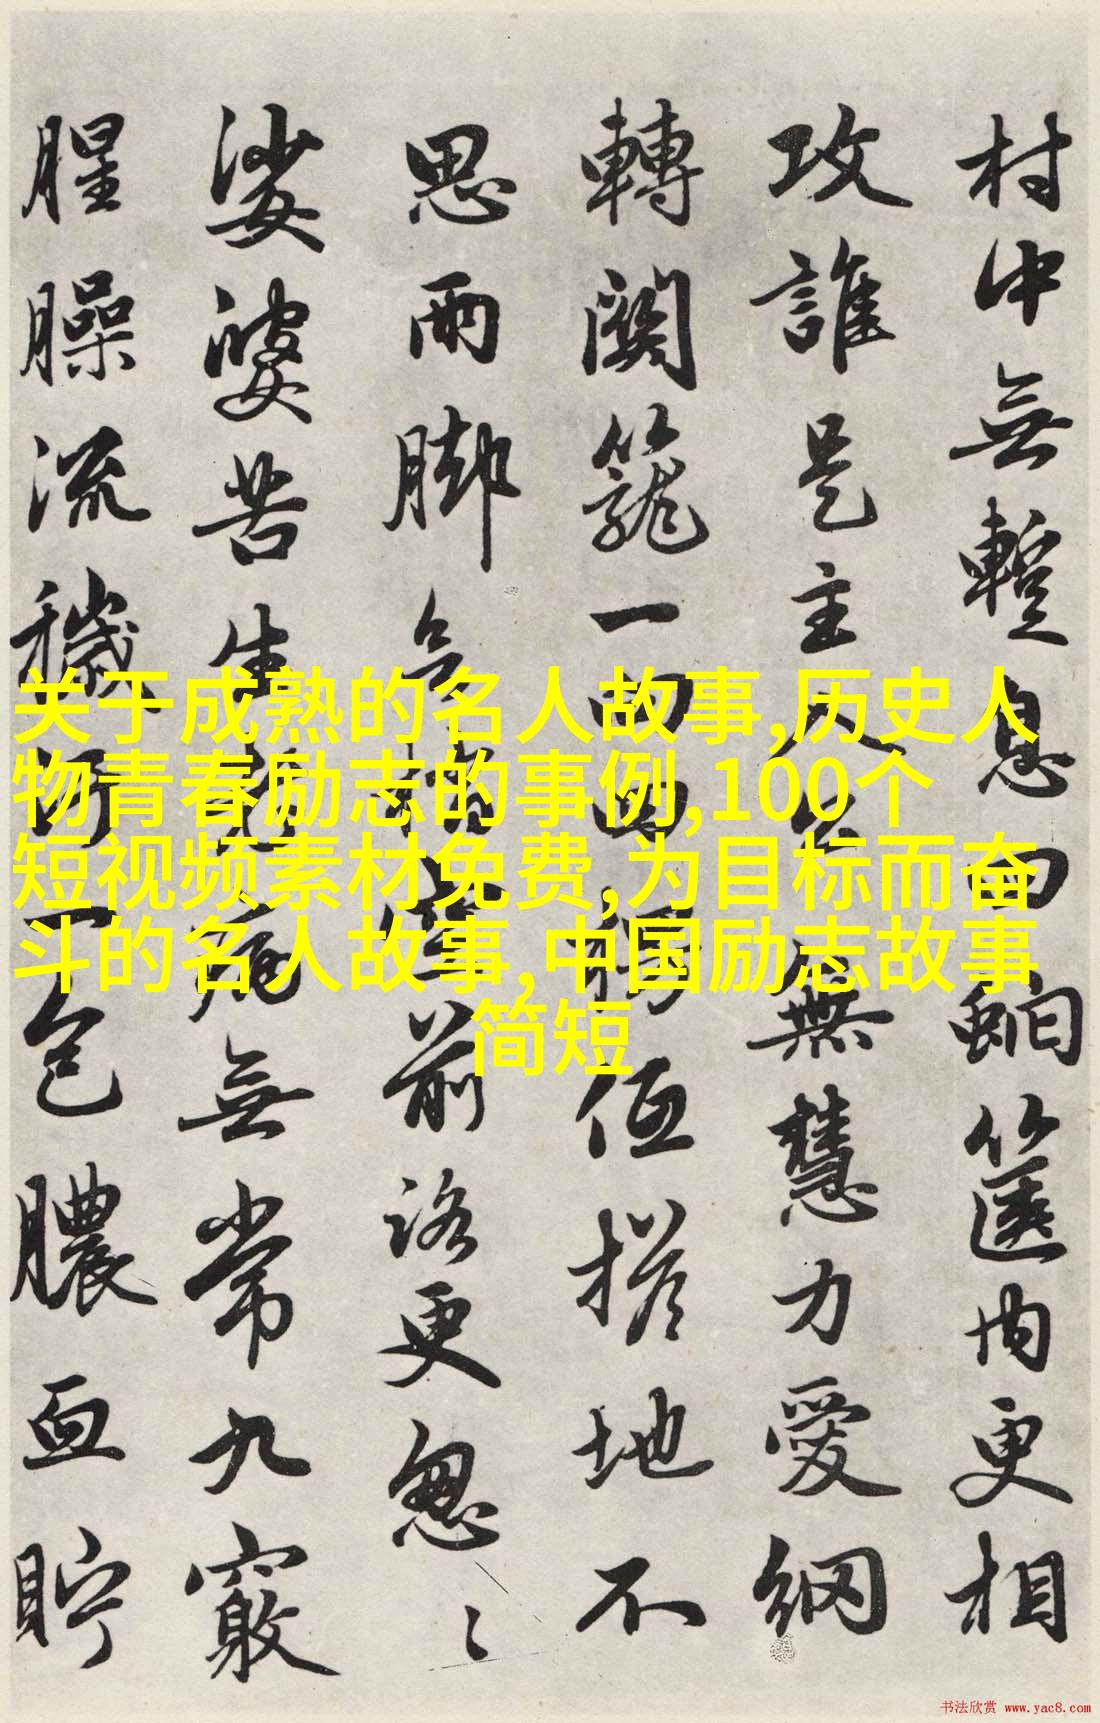 村中無暫息四虵篋内更相
攻誰是主人公無慧力愛網
轉關籠一地不
思兩脚前路更忽
娑婆苦生老病無常九竅
腥臊流穢一包膿血貯
关于成熟的名人故事,历史人
物青春励志的事例,100个
短视频素材免费,为目标而奋
斗的名人故事,中国励志故事
简短
书法欣赏 www.yac8.com